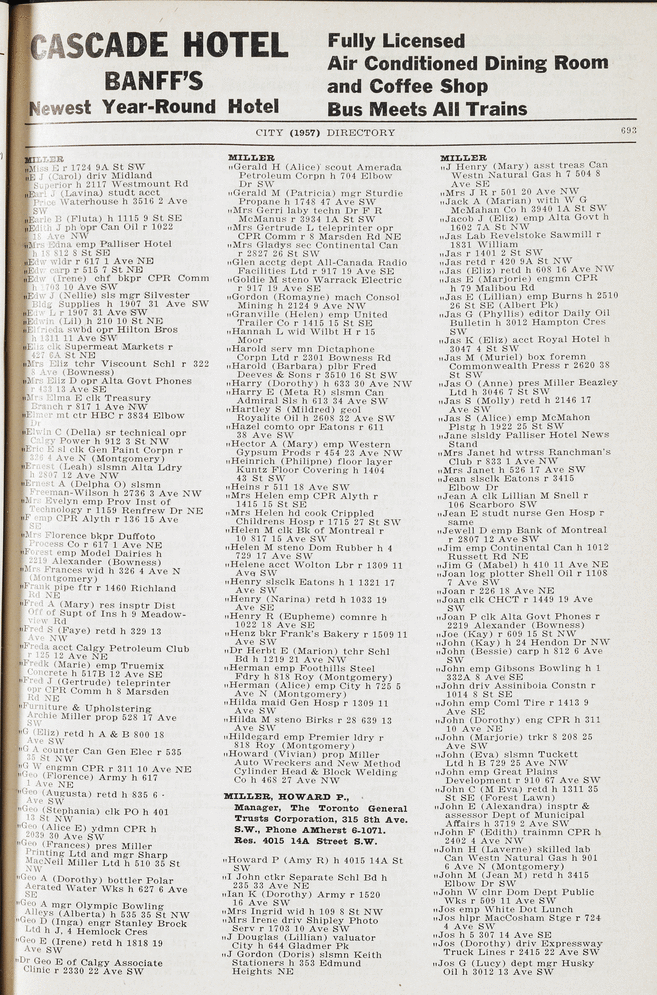 CASCADE HOTEL
BANFF'S
Newest Year-Round Hotel
Fully Licensed
Air Conditioned Dining Room
and Coffee Shop
Bus Meets All Trains
CITY (1957) DIRECTORY
693
MILLER
"Miss E r 1724 9A St SW
"E J (Carol) driv Midland
Superior h 2117 Westmount Rd
"Earl J (Lavina) studt acct
Price Waterhouse h 3516 2 Ave
SW
"Earle B (Fluta) h 1115 9 St SE
"Edith J ph opr Can Oil r 1022
18 Ave NW
"Mrs Edna emp Palliser Hotel
h 18 812 8 St SE
"Edw wldr r 617 1 Ave NE
"Edw carp r 515 7 St NE
"Edw (Irene) chf bkpr CPR Comm
h 1703 10 Ave SW
"Edw J (Nellie) sls mgr Silvester
Bldg Supplies h 1907 31 Ave SW
"Edw L r 1907 31 Ave SW
"Edwin (Lil) h 210 10 St NE
"Elfrieda swbd opr Hilton Bros
h 1311 11 Ave SW
"Eliz clk Supermeat Markets r
427 6A St NE
"Mrs Eliz tchr Viscount Schl r 322
8 Ave (Bowness)
"Mrs Eliz D opr Alta Govt Phones
r 433 13 Ave SE
"Mrs Elma E clk Treasury
Branch r 817 1 Ave NW
"Elmer mt ctr HBC r 3834 Elbow
Dr
"Elwin C (Della) sr technical opr
Calgy Power h 912 3 St NW
"Eric E sl clk Gen Paint Corpn r
326 4 Ave N (Montgomery)
"Ernest (Leah) slsmn Alta Ldry
h 2807 12 Ave NW
"Ernest A (Delpha O) slsmn
Freeman-Wilson h 2736 3 Ave NW
"Mrs Evelyn emp Prov Inst of
Technology r 1159 Renfrew Dr NE
"F emp CPR Alyth r 136 15 Ave
SE
"Mrs Florence bkpr Duffoto
Process Co r 617 1 Ave NE
"Forest emp Model Dairies h
2219 Alexander (Bowness)
"Mrs Frances wid h 326 4 Ave N
(Montgomery)
"Frank pipe ftr r 1460 Richland
Rd NE
"Fred A (Mary) res insptr Dist
Off of Supt of Ins h 9 Meadow-
view Rd
"Fred S (Faye) retd h 329 13
Ave NW
"Freda acct Calgy Petroleum Club
r 125 12 Ave NE
"Fredk (Marie) emp Truemix
Concrete h 517B 12 Ave SE
"Fred J (Gertrude) teleprinter
opr CPR Comm h 8 Marsden
Rd NE
"Furniture & Upholstering
Archie Miller prop 528 17 Ave
SW
"G (Eliz) retd h A & B 800 18
Ave SW
"G A counter Can Gen Elec r 535
35 St NW
"G W engmn CPR r 311 10 Ave NE
"Geo (Florence) Army h 617
1 Ave NE
"Geo (Augusta) retd h 835 6
Ave SW
"Geo (Stephania) clk PO h 401
13 St NW
"Geo (Alice E) ydmn CPR h
2039 30 Ave SW
"Geo (Frances) pres Miller
Printing Ltd and mgr Sharp
MacNeil Miller Ltd h 510 35 St
NW
"Geo A (Dorothy) bottler Polar
Aerated Water Wks h 627 6 Ave
SE
"Geo A mgr Olympic Bowling
Alleys (Alberta) h 535 35 St NW
"Geo D (Inga) engr Stanley Brock
Ltd h J, 4 Hemlock Cres
"Geo E (Irene) retd h 1818 19
Ave SW
"Dr Geo E of Calgy Associate
Clinic r 2330 22 Ave SW
MILLER
"Gerald H (Alice) scout Amerada
Petroleum Corpn h 704 Elbow
Dr SW
"Gerald M (Patricia) mgr Sturdie
Propane h 1748 47 Ave SW
"Mrs Gerri laby techn Dr F R
McManus r 3934 1A St SW
"Mrs Gertrude L teleprinter opr
CPR Comm r 8 Marsden Rd NE
"Mrs Gladys sec Continental Can
r 2827 26 St SW
"Glen acctg dept All-Canada Radio
Facilities Ltd r 917 19 Ave SE
"Goldie M steno Warrack Electric
r 917 19 Ave SE
"Gordon (Romayne) mach Consol
Mining h 2124 9 Ave NW
"Granville (Helen) emp United
Trailer Co r 1415 15 St SE
"Hannah L wid Wilbt H r 15
Moor
"Harold serv mn Dictaphone
Corpn Ltd r 2301 Bowness Rd
"Harold (Barbara) plbr Fred
Deeves & Sons r 3510 16 St SW
"Harry (Dorothy) h 633 30 Ave NW
"Harry E (Meta R) slsmn Can
Admiral Sls h 613 34 Ave SW
"Hartley S (Mildred) geol
Royalite Oil h 2608 32 Ave SW
"Hazel comto opr Eatons r 611
38 Ave SW
"Hector A (Mary) emp Western
Gypsum Prods r 454 23 Ave NW
"Heinrich (Philipne) floor layer
Kuntz Floor Covering h 1404
43 St SW
"Heins r 511 18 Ave SW
"Mrs Helen emp CPR Alyth r
1415 15 St SE
"Mrs Helen hd cook Crippled
Childrens Hosp r 1715 27 St SW
"Helen M clk Bk of Montreal r
10 817 15 Ave SW
"Helen M steno Dom Rubber h 4
729 17 Ave SW
"Helene acct Wolton Lbr r 1309 11
Ave SW
"Henry slsclk Eatons h 1 1321 17
Ave SW
"Henry (Narina) retd h 1033 19
Ave SE
"Henry R (Eupheme) comnre h
1022 18 Ave SE
"Henz bkr Frank's Bakery r 1509 11
Ave SW
"Dr Herbt E (Marion) tchr Schl
Bd h 1219 21 Ave NW
"Herman emp Foothills Steel
Fdry h 818 Roy (Montgomery)
"Herman (Alice) emp City h 725 5
Ave N (Montgomery)
"Hilda maid Gen Hosp r 1309 11
Ave SW
"Hilda M steno Birks r 28 639 13
Ave SW
"Hildegard emp Premier ldry r
818 Roy (Montgomery)
"Howard (Vivian) prop Miller
Auto Wreckers and New Method
Cylinder Head & Block Welding
Co h 468 27 Ave NW
MILLER, HOWARD P.,
Manager, The Toronto General
Trusts Corporation, 315 8th Ave.
S.W., Phone AMherst 6-1071.
Res. 4015 14A Street S.W.
"Howard P (Amy R) h 4015 14A St
SW
"I John ctkr Separate Schl Bd h
235 33 Ave NE
"Ian K (Dorothy) Army r 1520
16 Ave SW
"Mrs Ingrid wid h 109 8 St NW
"Mrs Irene driv Shipley Photo
Serv r 1703 10 Ave SW
"J Douglas (Lillian) valuator
City h 644 Gladmer Pk
"J Gordon (Doris) slsmn Keith
Stationers h 353 Edmund
Heights NE
MILLER
"J Henry (Mary) asst treas Can
Westn Natural Gas h 7 504 8
Ave SE
"Mrs J R r 501 20 Ave NW
"Jack A (Marian) with W G
McMahan Co h 3940 1A St SW
"Jacob J (Eliz) emp Alta Govt h
1602 7A St NW
"Jas Lab Revelstoke Sawmill r
1831 William
"Jas r 1401 2 St SW
"Jas retd r 420 9A St NW
"Jas (Eliz) retd h 608 16 Ave NW
"Jas E (Marjorie) engmn CPR
h 79 Malibou Rd
"Jas E (Lillian) emp Burns h 2510
26 St SE (Albert Pk)
"Jas G (Phyllis) editor Daily Oil
Bulletin h 3012 Hampton Cres
SW
"Jas K (Eliz) acct Royal Hotel h
3047 4 St SW
"Jas M (Muriel) box foremn
Commonwealth Press r 2620 38
St SW
"Jas O (Anne) pres Miller Beazley
Ltd h 3046 7 St SW
"Jas S (Molly) retd h 2146 17
Ave SW
"Jas S (Alice) emp McMahon
Plstg h 1922 25 St SW
"Jane slsldy Palliser Hotel News
Stand
"Mrs Janet hd wtrss Ranchman's
Club r 833 1 Ave NW
"Mrs Janet h 526 17 Ave SW
"Jean slsclk Eatons r 3415
Elbow Dr
"Jean A clk Lillian M Snell r
106 Scarboro SW
"Jean E studt nurse Gen Hosp r
same
"Jewell D emp Bank of Montreal
r 2807 12 Ave SW
"Jim emp Continental Can h 1012
Russett Rd NE
"Jim G (Mabel) h 410 11 Ave NE
"Joan log plotter Shell Oil r 1108
7 Ave SW
"Joan r 226 18 Ave NE
"Joan clk CHCT r 1449 19 Ave
SW
"Joan P clk Alta Govt Phones r
2219 Alexander (Bowness)
"Joe (Kay) r 609 15 St NW
"John (Kay) h 24 Hendon Dr NW
"John (Bessie) carp h 812 6 Ave
SW
"John emp Gibsons Bowling h 1
332A 8 Ave SE
"John driv Assiniboia Constn r
1014 8 St SE
"John emp Coml Tire r 1413 9
Ave SE
"John (Dorothy) eng CPR h 311
10 Ave NE
"John (Marjorie) trkr 8 208 25
Ave SW
"John (Eva) slsmn Tuckett
Ltd h B 729 25 Ave NW
"John emp Great Plains
Development r 910 67 Ave SW
"John C (M Eva) retd h 1311 35
St SE (Forest Lawn)
"John E (Alexandra) insptr &
assessor Dept of Municipal
Affairs h 3719 2 Ave SW
"John F (Edith) trainmn CPR h
2402 4 Ave NW
"John H (Laverne) skilled lab
Can Westn Natural Gas h 901
6 Ave N (Montgomery)
"John M (Jean M) retd h 3415
Elbow Dr SW
"John W clnr Dom Dept Public
Wks r 509 11 Ave SW
"Jos emp White Dot Lunch
"Jos hlpr MacCosham Stge r 724
4 Ave SW
"Jos h 5 307 14 Ave SE
"Jos (Dorothy) driv Expressway
Truck Lines r 2415 22 Ave SW
"Jos G (Lucy) dept mgr Husky
Oil h 3012 13 Ave SW